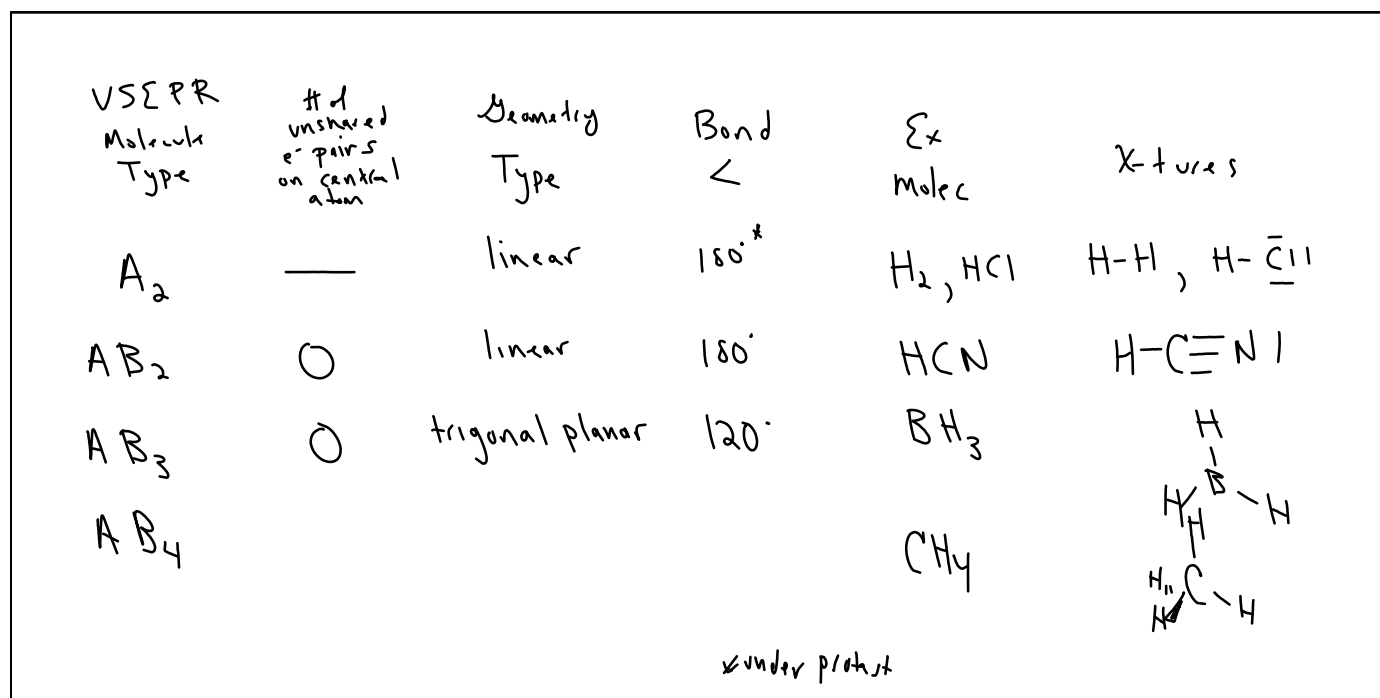 VSEPR Molecule Type
# of unshared e⁻ pairs on central atom
Geometry Type
Bond <
Ex molec
X-tures
A₂ — linear 180°* H₂, HCl H-H, H-Cl
AB₂ 0 linear 180° HCN H-C≡N|
AB₃ 0 trigonal planar 120° BH₃ H B H H
AB₄ CH₄ H C H H H
*under protest